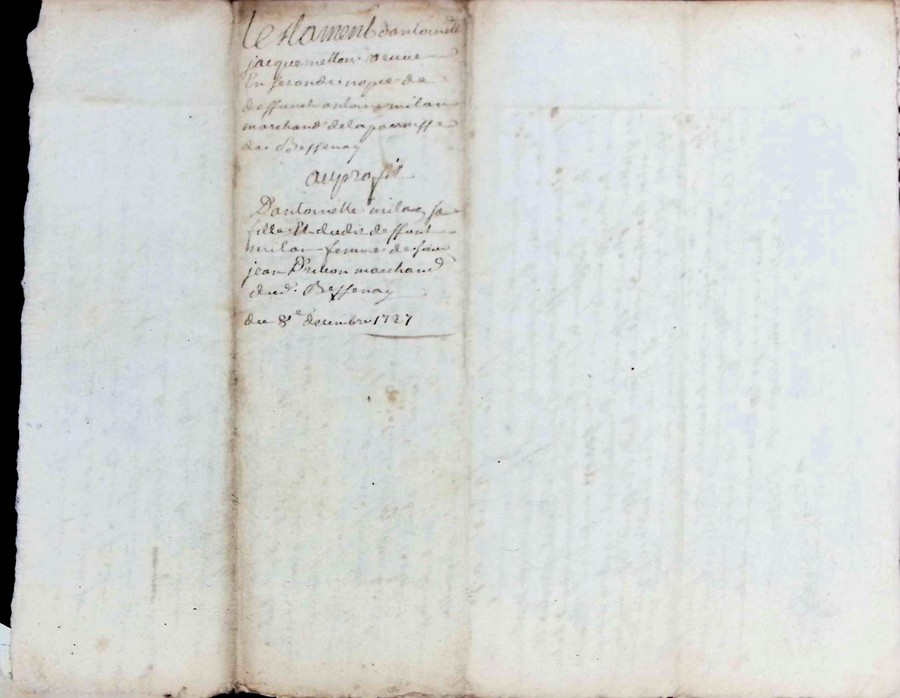 testament dantoinette
jacquemetton veuve
En seconde nopce de
deffunct antoine milan
marchand de la parroisse
de Bessenay
au profit
D'antoinette milan sa
fille Et dudit deffunt
milan femme de sieur
jean marchand
dud. Bessenay
du 8e decembre 1727